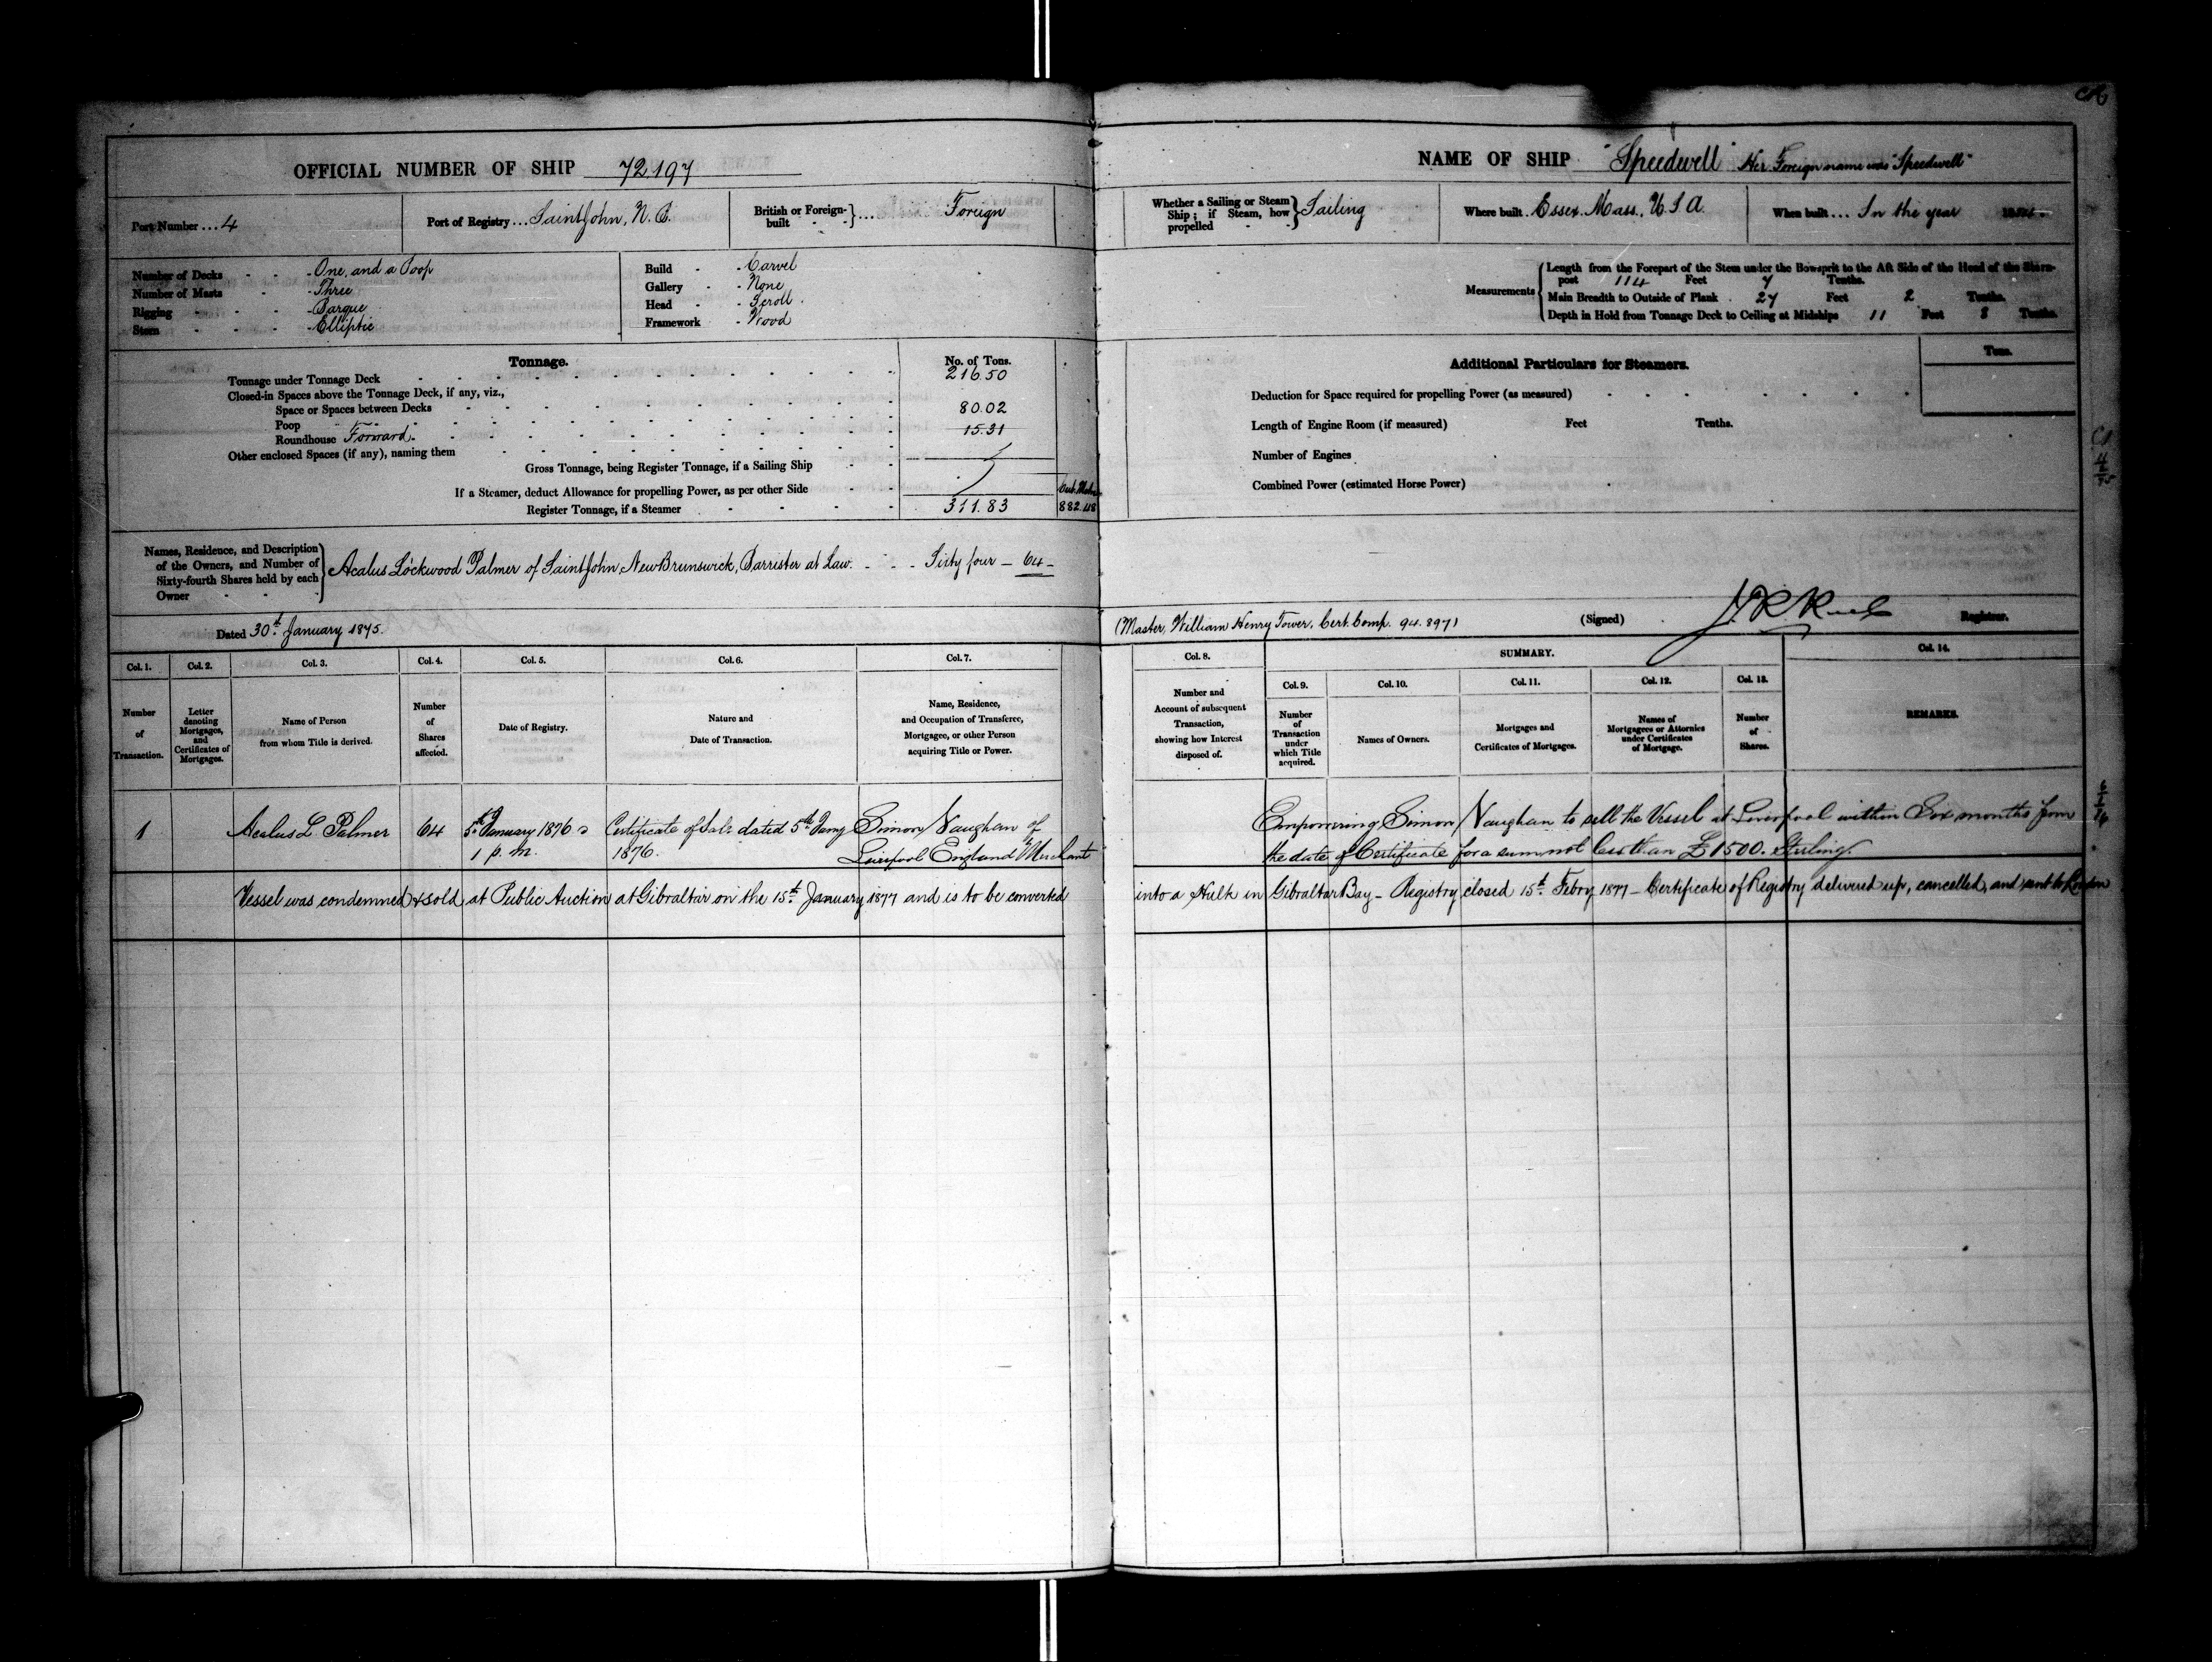 OFFICIAL NUMBER OF SHIP 72,197
NAME OF SHIP "Speedwell" Her Foreign name was "Speedwell"
Port Number ... 4
Port of Registry ... Saint John, N. B.
British or Foreign-built } ... Foreign
Whether a Sailing or Steam Ship; if Steam, how propelled } Sailing
Where built . Essex, Mass., U.S.A.
When built ... In the year
Number of Decks - One, and a Poop
Number of Masts - Three
Rigging - Barque
Stern - Elliptic
Build - Carvel
Gallery - None
Head - Scroll
Framework - Wood
Measurements
Length from the Forepart of the Stem under the Bowsprit to the Aft Side of the Head of the Stern-
post 114 Feet 7 Tenths.
Main Breadth to Outside of Plank . 27 Feet 2 Tenths.
Depth in Hold from Tonnage Deck to Ceiling at Midships 11 Feet 8 Tenths.
Tonnage. No. of Tons.
Tonnage under Tonnage Deck 216.50
Closed-in Spaces above the Tonnage Deck, if any, viz.,
Space or Spaces between Decks
Poop 80.02
Roundhouse Forward. 15.31
Other enclosed Spaces (if any), naming them
Gross Tonnage, being Register Tonnage, if a Sailing Ship
If a Steamer, deduct Allowance for propelling Power, as per other Side
Register Tonnage, if a Steamer 311.83 882.48
Additional Particulars for Steamers. Tons.
Deduction for Space required for propelling Power (as measured)
Length of Engine Room (if measured) Feet Tenths.
Number of Engines
Combined Power (estimated Horse Power)
Names, Residence, and Description
of the Owners, and Number of
Sixty-fourth Shares held by each
Owner
Acalus Lockwood Palmer of Saint John, New Brunswick, Barrister at Law. Sixty four - 64 -
Dated 30th January 1875.
(Master, William Henry Tower, Cert. Comp. 94.897) (Signed) Registrar.
Col. 1. Col. 2. Col. 3. Col. 4. Col. 5. Col. 6. Col. 7.
Col. 8. SUMMARY. Col. 14.
Col. 9. Col. 10. Col. 11. Col. 12. Col. 13.
Number of Transaction.
Letter denoting Mortgages, and Certificates of Mortgages.
Name of Person from whom Title is derived.
Number of Shares affected.
Date of Registry.
Nature and Date of Transaction.
Name, Residence, and Occupation of Transferee, Mortgagee, or other Person acquiring Title or Power.
Number and Account of subsequent Transaction, showing how Interest disposed of.
Number of Transaction under which Title acquired.
Names of Owners.
Mortgages and Certificates of Mortgages.
Names of Mortgagees or Attornies under Certificates of Mortgage.
Number of Shares.
REMARKS.
1 Acalus L Palmer 64 5th January 1876 Certificate of Sale dated 5th Jany Simon Vaughan of Empowering Simon Vaughan to sell the Vessel at Liverpool within Six months from
1 p. m. 1876. Liverpool England Merchant the date of Certificate for a sum not less than £1500. Sterling.
Vessel was condemned & sold at Public Auction at Gibraltar on the 15th January 1877 and is to be converted into a Hulk in Gibraltar Bay - Registry closed 15th Febry 1877 - Certificate of Registry delivered up, cancelled, and sent to London